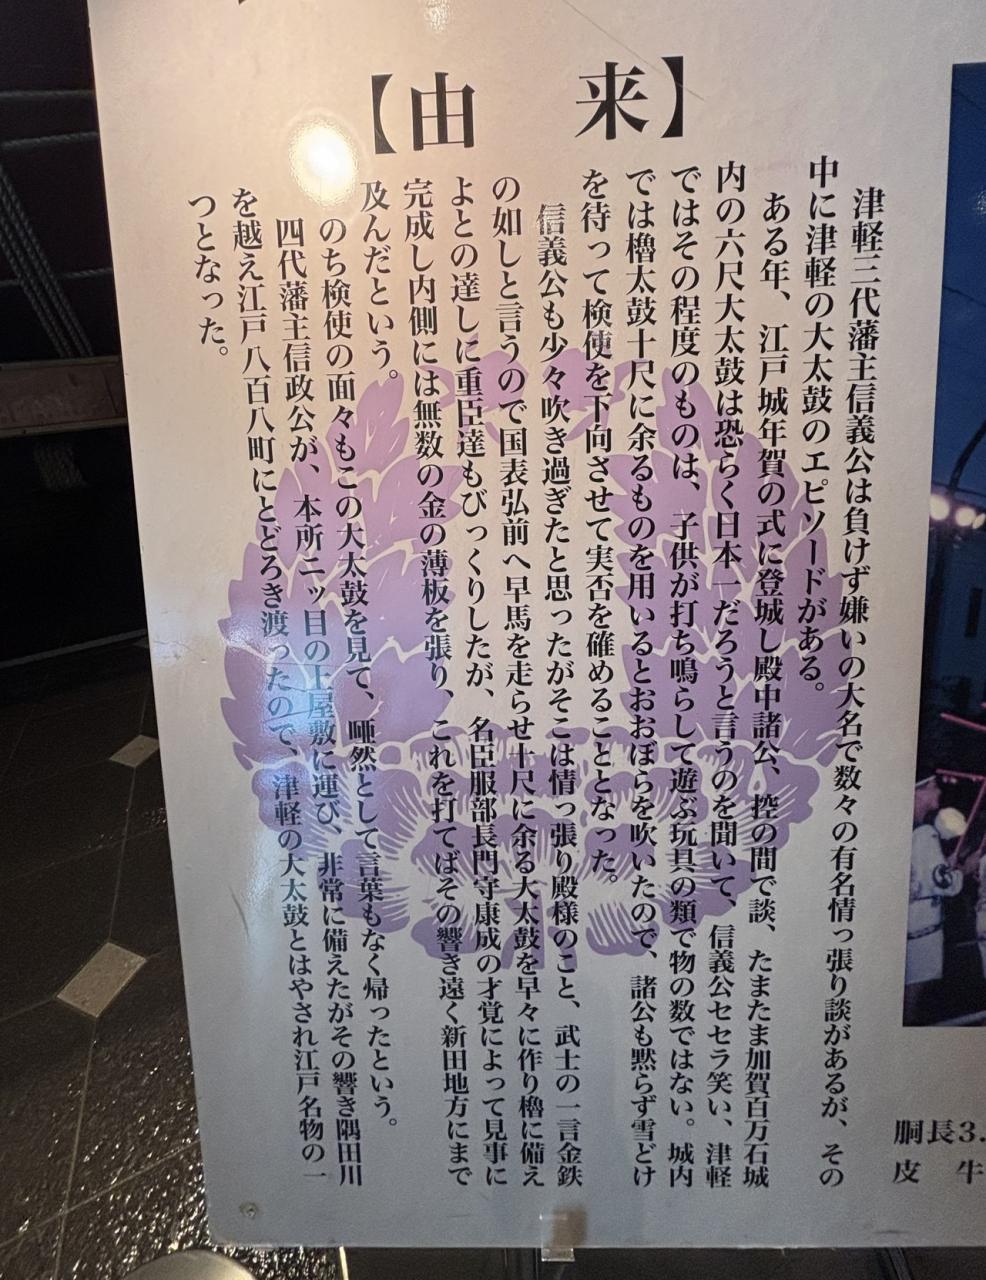 【由　来】
津軽三代藩主信義公は負けず嫌いの大名で数々の有名情っ張り談があるが、その
中に津軽の大太鼓のエピソードがある。
ある年、江戸城年賀の式に登城し殿中諸公、控の間で談、たまたま加賀百万石城
内の六尺大太鼓は恐らく日本一だろうと言うのを聞いて、信義公セセラ笑い、津軽
ではその程度のものは、子供が打ち鳴らして遊ぶ玩具の類で物の数ではない。城内
では櫓太鼓十尺に余るものを用いるとおおぼらを吹いたので、諸公も黙らず雪どけ
を待って検使を下向させて実否を確めることとなった。
信義公も少々吹き過ぎたと思ったがそこは情っ張り殿様のこと、武士の一言金鉄
の如しと言うので国表弘前へ早馬を走らせ十尺に余る大太鼓を早々に作り櫓に備え
よとの達しに重臣達もびっくりしたが、名臣服部長門守康成の才覚によって見事に
完成し内側には無数の金の薄板を張り、これを打てばその響き遠く新田地方にまで
及んだという。
のち検使の面々もこの大太鼓を見て、唖然として言葉もなく帰ったという。
四代藩主信政公が、本所二ッ目の上屋敷に運び、非常に備えたがその響き隅田川
を越え江戸八百八町にとどろき渡ったので、津軽の大太鼓とはやされ江戸名物の一
つとなった。
胴長3.
皮　牛